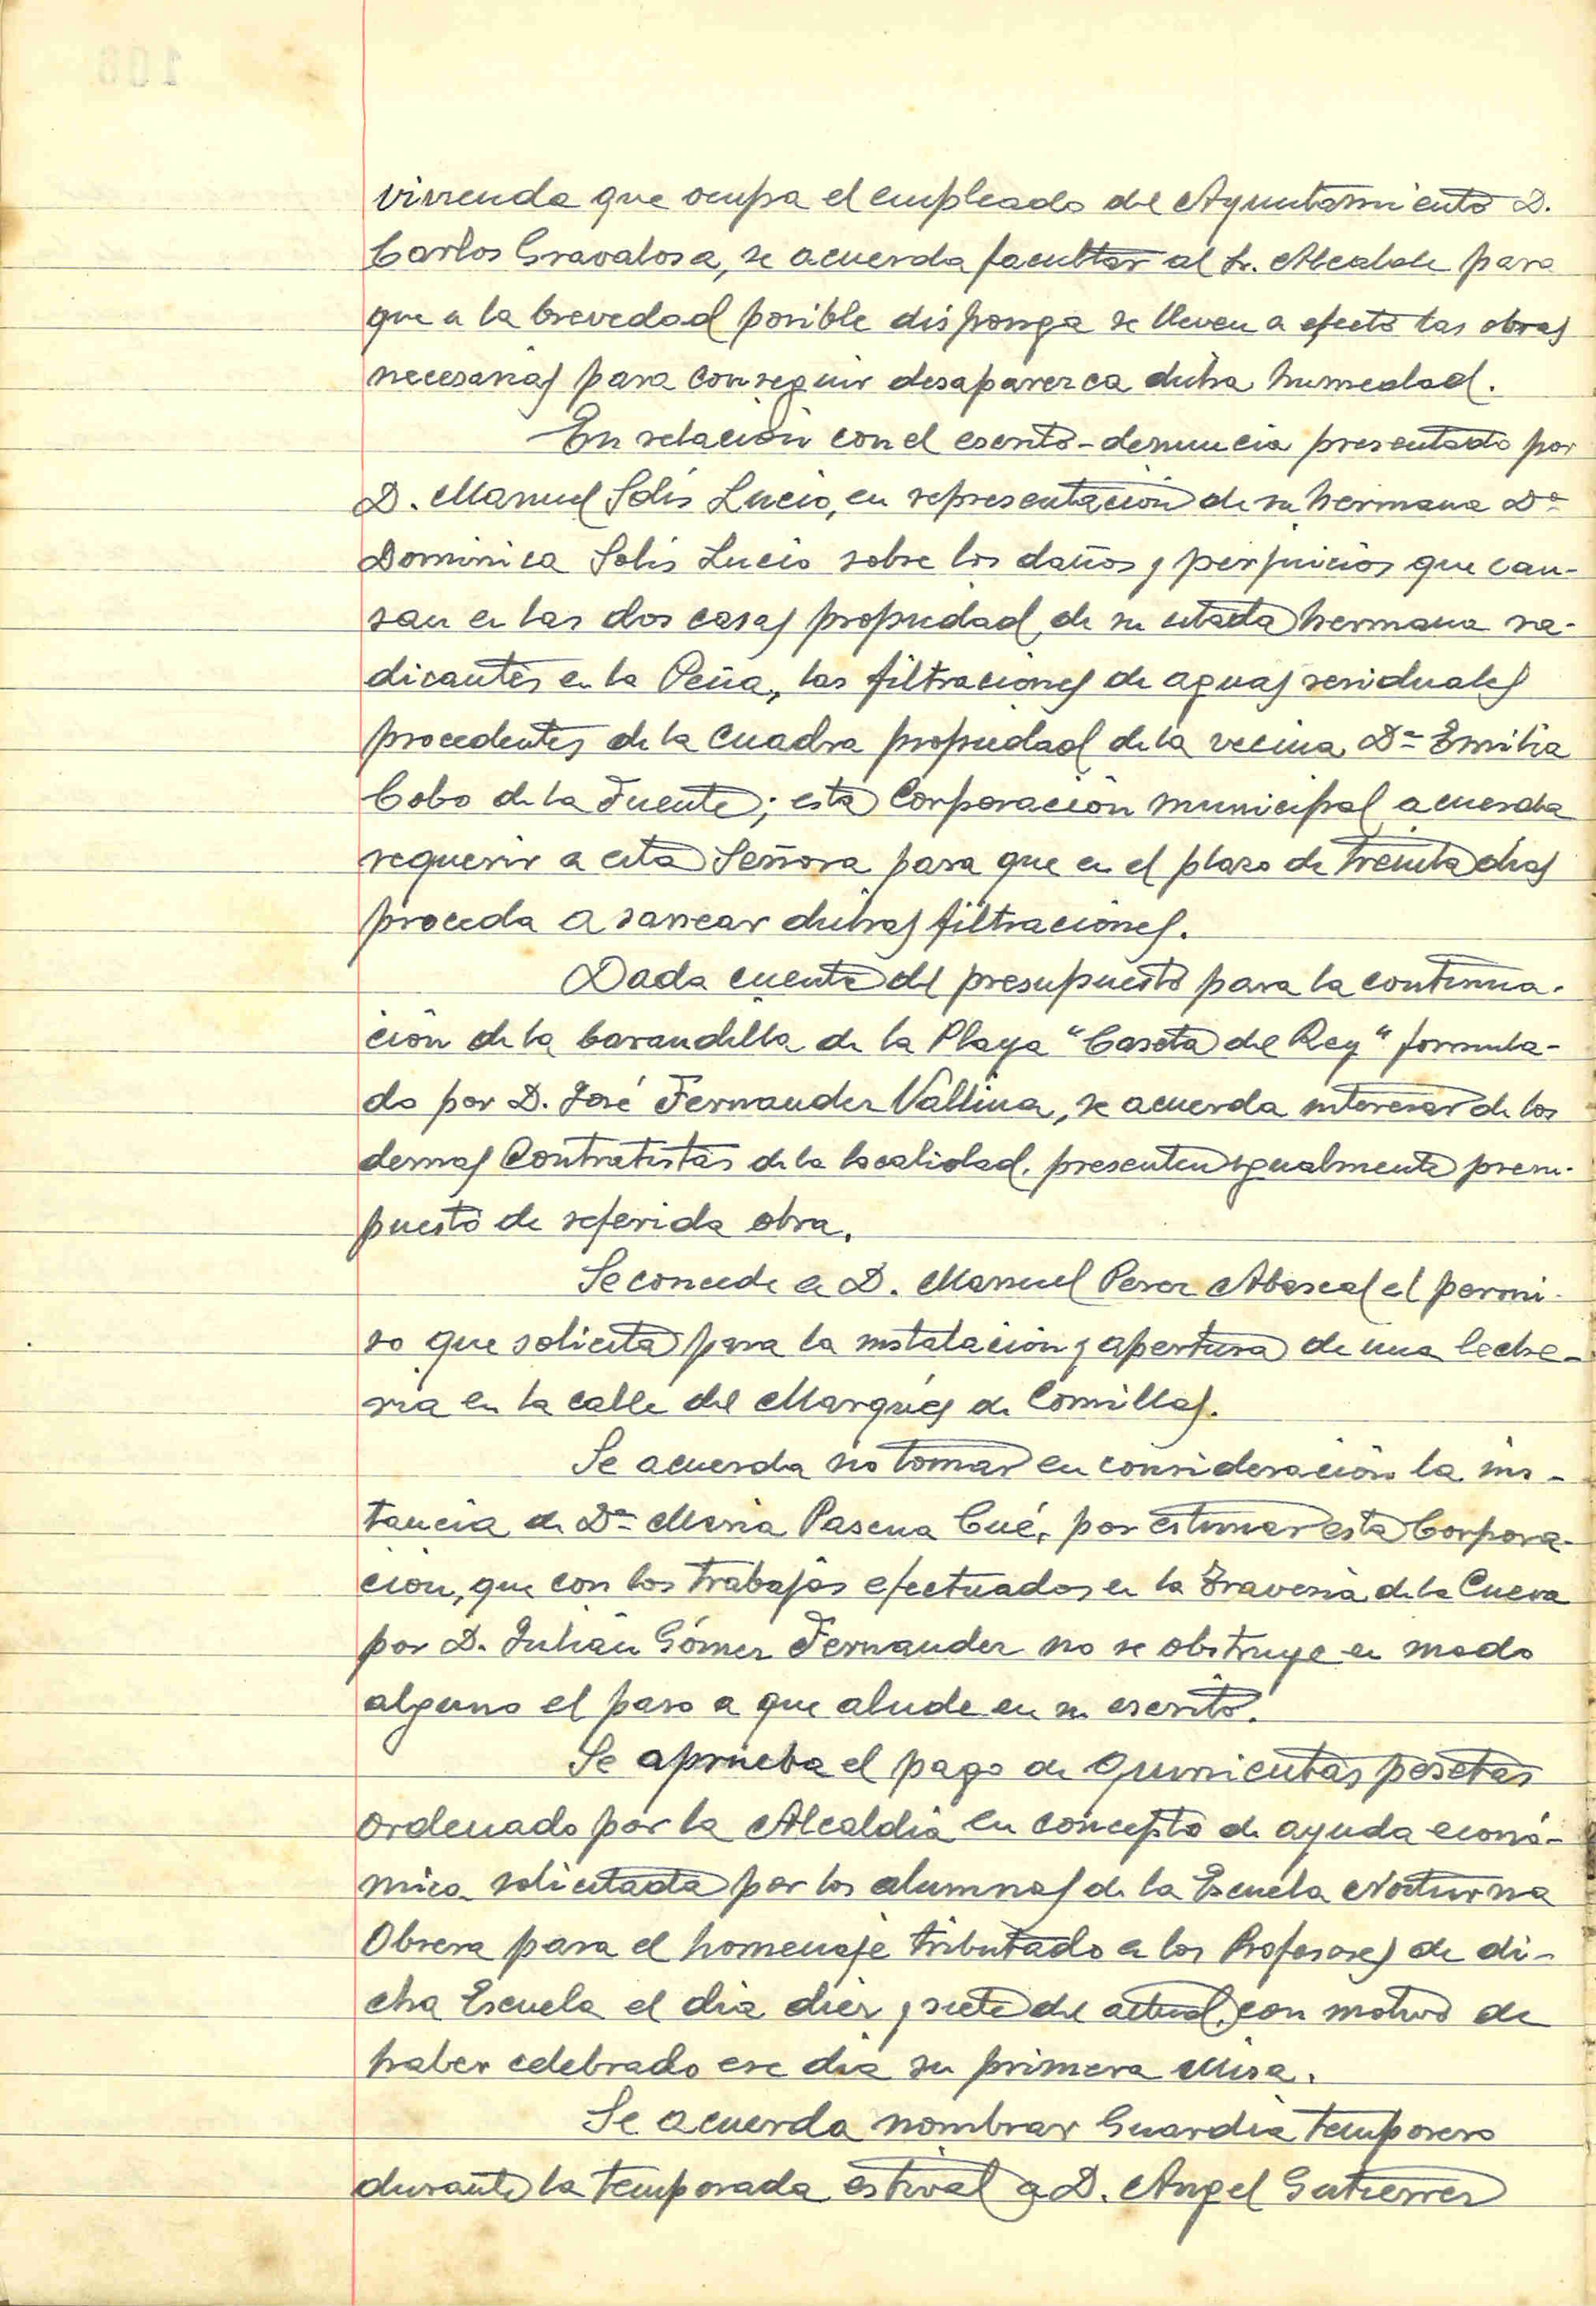 vivienda que ocupa el empleado del Ayuntamiento D.
Carlos Gravalosa, se acuerda facultar al Sr. Alcalde para
que a la brevedad posible disponga se lleven a efecto las obras
necesarias para conseguir desaparezca dicha humedad.
En relación con el escrito-denuncia presentado por
D. Manuel Solís Lucio, en representación de su hermana Dª
Dominica Solís Lucio sobre los daños y perjuicios que cau-
san en las dos casas propiedad de su citada hermana ra-
dicantes en la Peña, las filtraciones de aguas residuales
procedentes de la cuadra propiedad de la vecina Dª Emilia
Cobo de la Fuente; esta Corporación municipal acuerda
requerir a esta Señora para que en el plazo de treinta días
proceda a sanear dichas filtraciones.
Dada cuenta del presupuesto para la continua-
ción de la barandilla de la Playa "Caseta del Rey" formula-
do por D. José Fernandez Vallina, se acuerda interesar de los
demas Contratistas de la localidad, presenten igualmente presu-
puesto de referida obra.
Se concede a D. Manuel Perez Abascal el permi-
so que solicita para la instalación y apertura de una leche-
ria en la calle del Marqués de Comillas.
Se acuerda no tomar en consideración la ins-
tancia de Dª Maria Pascua Cué, por estimar esta Corpora-
ción, que con los trabajos efectuados en la Travesía de la Cueva
por D. Julián Gómez Fernandez no se obstruye en modo
alguno el paso a que alude en su escrito.
Se aprueba el pago de quinientas pesetas
ordenado por la Alcaldía en concepto de ayuda econó-
mica solicitada por los alumnos de la Escuela Nocturna
Obrera para el homenaje tributado a los Profesores de di-
cha Escuela el día diez y siete del actual, con motivo de
haber celebrado ese día su primera Misa.
Se acuerda nombrar Guardia temporero
durante la temporada estival a D. Angel Gutierrez